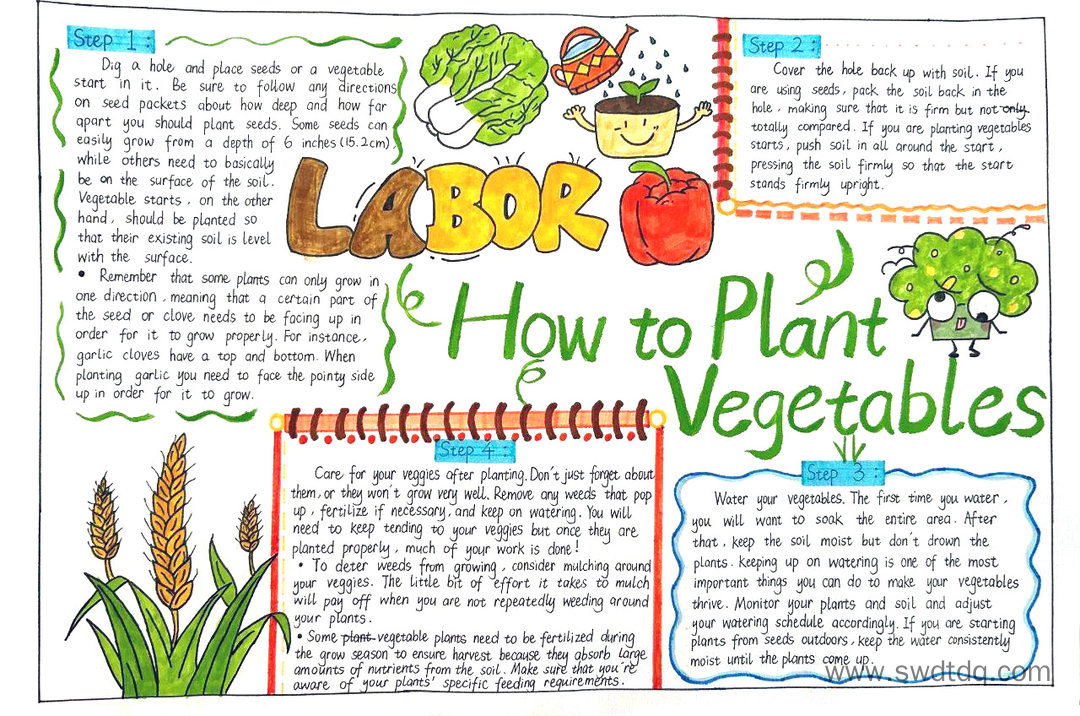 Step 1:
Dig a hole and place seeds or a vegetable
start in it. Be sure to follow any directions
on seed packets about how deep and how far
apart you should plant seeds. Some seeds can
easily grow from a depth of 6 inches (15.2cm),
while others need to basically
be on the surface of the soil.
Vegetable starts, on the other
hand, should be planted so
that their existing soil is level
with the surface.
• Remember that some plants can only grow in
one direction, meaning that a certain part of
the seed or clove needs to be facing up in
order for it to grow properly. For instance,
garlic cloves have a top and bottom. When
planting garlic you need to face the pointy side
up in order for it to grow.
LABOR
Step 2:
Cover the hole back up with soil. If you
are using seeds, pack the soil back in the
hole, making sure that it is firm but not only
totally compared. If you are planting vegetables
starts, push soil in all around the start,
pressing the soil firmly so that the start
stands firmly upright.
How to Plant
Vegetables
Step 3:
Water your vegetables. The first time you water,
you will want to soak the entire area. After
that, keep the soil moist but don't drown the
plants. keeping up on watering is one of the most
important things you can do to make your vegetables
thrive. Monitor your plants and soil and adjust
your watering schedule accordingly. If you are starting
plants from seeds outdoors, keep the water consistently
moist until the plants come up.
Step 4:
Care for your veggies after planting. Don't just forget about
them, or they won't grow very well. Remove any weeds that pop
up, fertilize if necessary, and keep on watering. You will
need to keep tending to your veggies but once they are
planted properly, much of your work is done!
• To deter weeds from growing, consider mulching around
your veggies. The little bit of effort it takes to mulch
will pay off when you are not repeatedly weeding around
your plants.
• Some plant vegetable plants need to be fertilized during
the grow season to ensure harvest because they absorb large
amounts of nutrients from the soil. Make sure that you're
aware of your plants' specific feeding requirements.
www.swdtdq.com